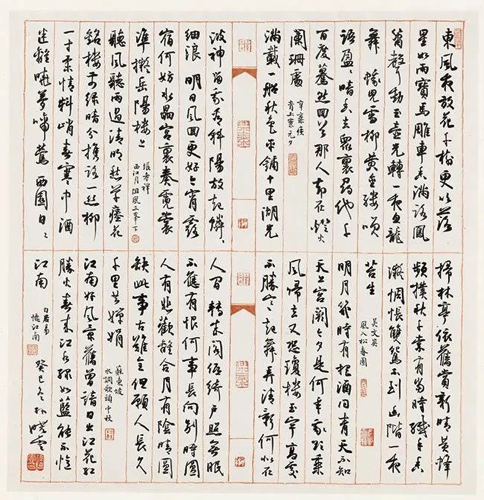 東風夜放花千樹更吹落
星如雨寶馬雕車香滿路鳳
簫聲動玉壺光轉一夜魚龍
舞 蛾兒雪柳黃金縷笑
語盈盈暗香去眾裏尋他千
百度驀然回首那人卻在燈火
闌珊處
辛棄疾
青玉案元夕
滿載一船秋色平鋪十里湖光
波神留我看斜陽放起鱗鱗
細浪 明日風回更好今宵露
宿何妨水晶宮裏奏霓裳
準擬岳陽樓上
張孝祥
西江月阻風三峯下
聽風聽雨過清明愁草瘞花
銘樓前綠暗分攜路一絲柳
一寸柔情料峭春寒中酒
迷離曉夢啼鶯 西園日日
掃林亭依舊賞新晴黃蜂
頻撲秋千索有當時纖手香
凝惆悵雙鴛不到幽階一夜
苔生
吳文英
風入松春園
明月幾時有把酒問青天不知
天上宮闕今夕是何年我欲乘
風歸去又恐瓊樓玉宇高處
不勝寒起舞弄清影何似在
人間 轉朱閣低綺戶照無眠
不應有恨何事長向別時圓
人有悲歡離合月有陰晴圓
缺此事古難全但願人長久
千里共嬋娟
蘇東坡
水調歌頭中秋
江南好風景舊曾諳日出江花紅
勝火春來江水綠如藍能不憶
江南
白居易
憶江南
癸巳冬